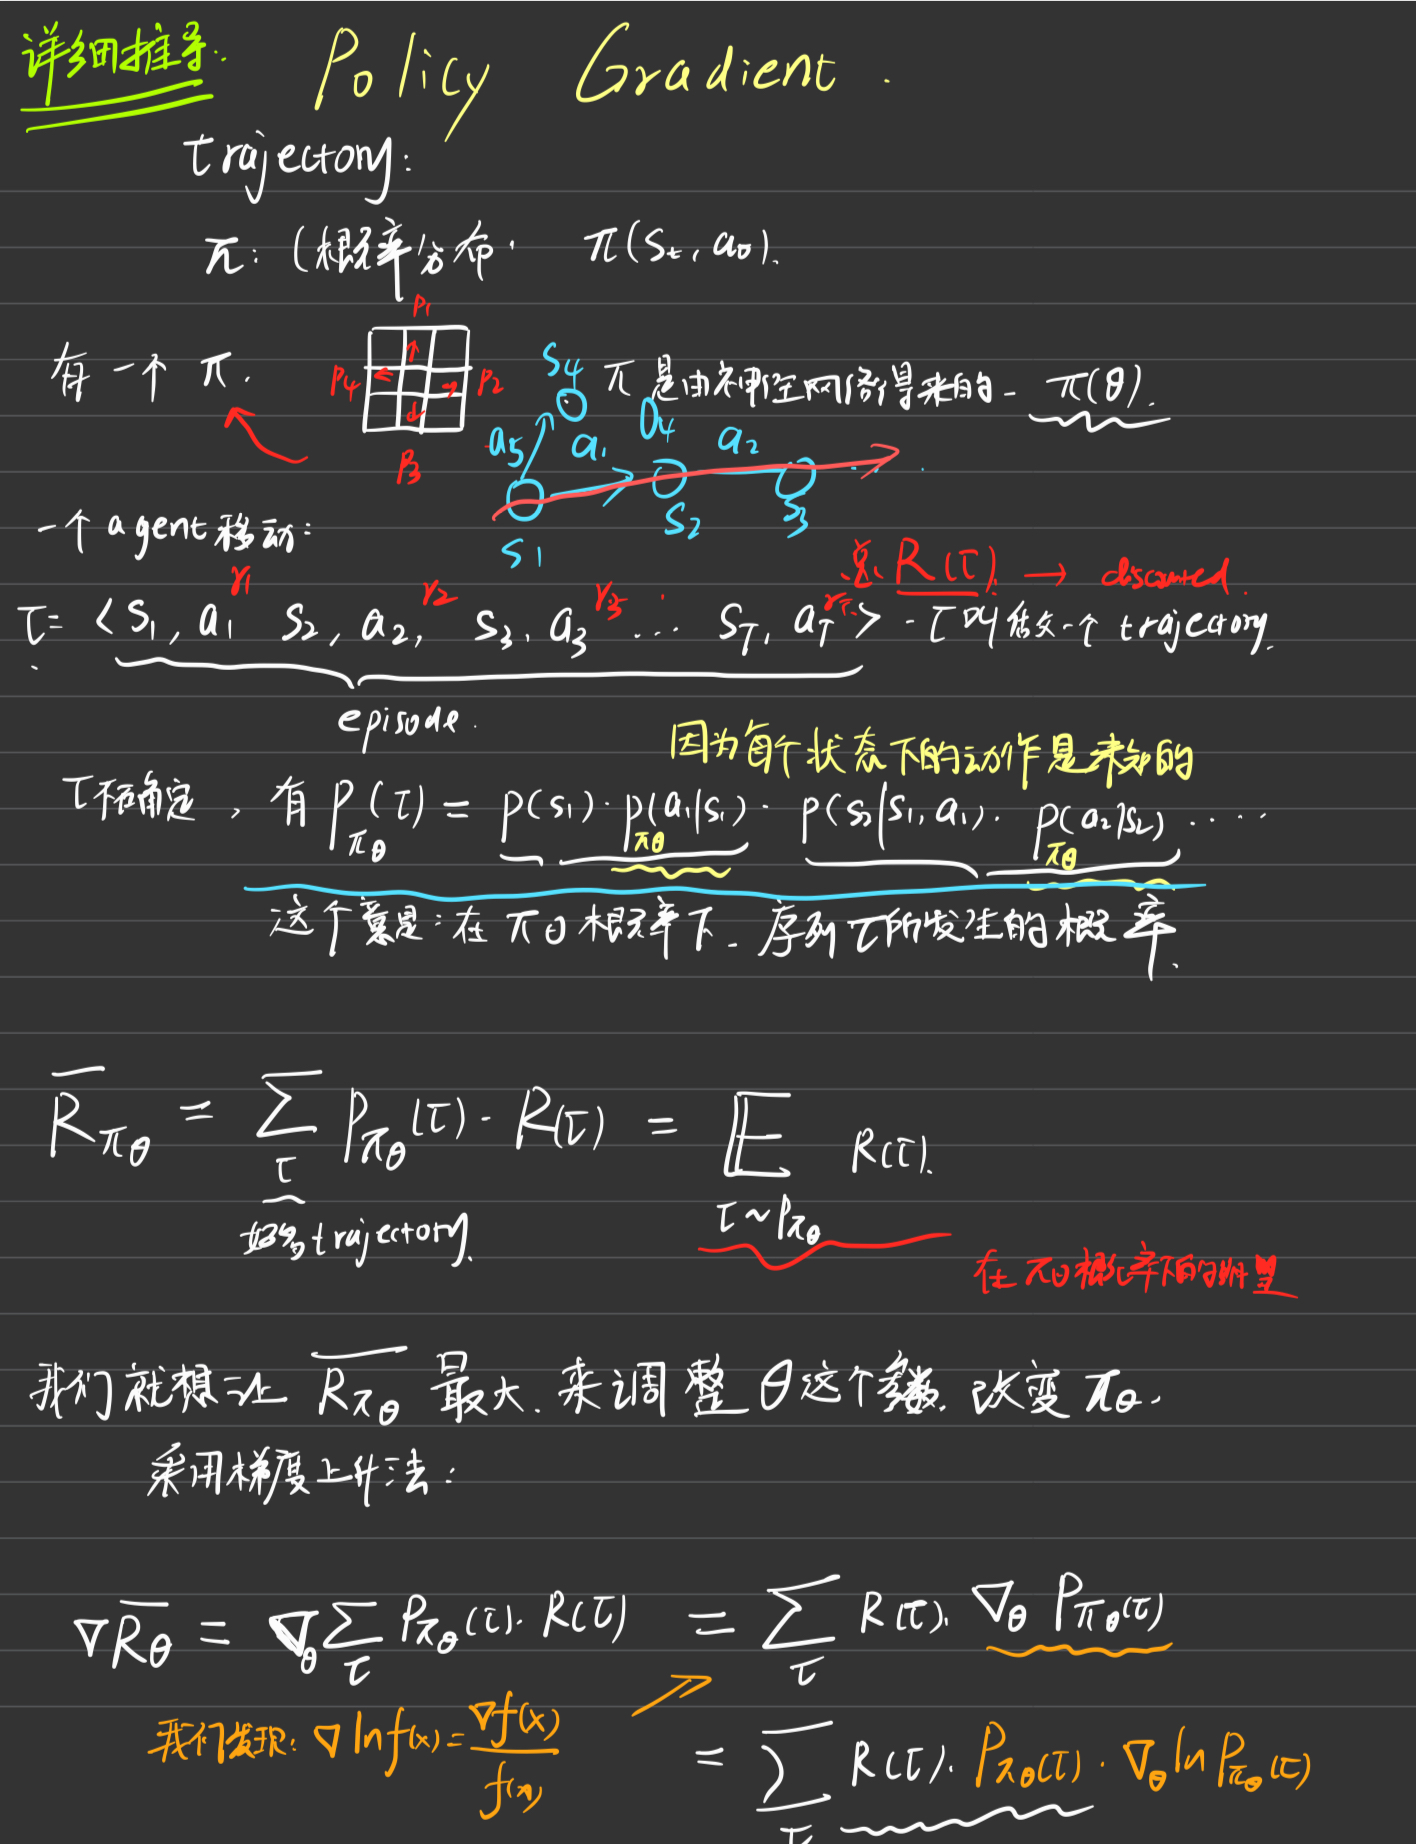 详细推导: Policy Gradient.
trajectory:
π: (概率分布. π(St, a0).
P1
有一个 π. P4 P2 S4 π 是由神经网络得来的 - π(θ).
P3 a5 a1 a4 a2
一个 agent 移动: S1 S2 S3
总 R(τ) → discounted.
r1 r2 r3 rT
τ = <S1, a1 S2, a2, S3, a3 ... ST, aT> - τ 叫做 一个 trajectory.
episode.
因为每个状态下的动作是未知的
τ不确定, 有 Pπθ(τ) = p(s1) · pπθ(a1|s1) · p(s2|s1, a1) · pπθ(a2|s2) ·····
这个意思: 在 πθ 概率下. 序列 τ 所发生的概率.
R̄πθ = ∑τ Pπθ(τ) · R(τ) = 𝔼τ~Pπθ R(τ).
好多 trajectory.
在 πθ 概率下的期望
我们就想让 R̄πθ 最大. 来调整 θ 这个参数. 改变 πθ.
采用梯度上升法:
∇R̄θ = ∇θ ∑τ Pπθ(τ) · R(τ) = ∑τ R(τ) · ∇θ Pπθ(τ)
我们发现: ∇ ln f(x) = ∇f(x) / f(x)
= ∑τ R(τ) · Pπθ(τ) · ∇θ ln Pπθ(τ)